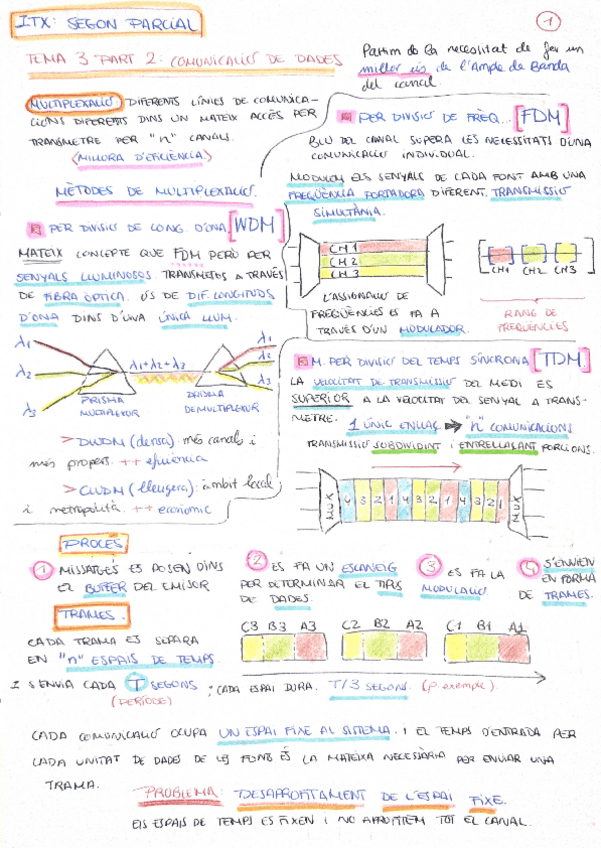 ITX: SEGON PARCIAL
1
TEMA 3 PART 2: COMUNICACIÓ DE DADES
Partim de la necessitat de fer un
millor ús de l'Ample de Banda
del canal.
MULTIPLEXACIÓ DIFERENTS LÍNIES DE COMUNICA-
CIONS DIFERENTS DINS UN MATEIX ACCÉS PER
TRANSMETRE PER "n" CANALS.
<MILLORA D'EFICIÈNCIA>
MÈTODES DE MULTIPLEXACIÓ.
PER DIVISIÓ DE FREQ... [FDM]
BW DEL CANAL SUPERA LES NECESSITATS D'UNA
COMUNICACIÓ INDIVIDUAL.
MODULEM ELS SENYALS DE CADA FONT AMB UNA
FREQÜÈNCIA PORTADORA DIFERENT. TRANSMISSIÓ
SIMULTÀNIA.
CH 1
CH 2
CH 3
CH1 CH2 CH3
L'ASSIGNACIÓ DE
FREQÜÈNCIES ES FA A
TRAVÉS D'UN MODULADOR.
RANG DE
FREQÜÈNCIES
PER DIVISIÓ DE LONG. D'ONA [WDM]
MATEIX CONCEPTE QUE FDM PERÒ PER
SENYALS LLUMINOSOS. TRANSMETOS A TRAVÉS
DE FIBRA ÒPTICA. ÚS DE DIF. LONGITUDS
D'ONA DINS D'UNA ÚNICA LLUM.
λ1
λ2
λ3
λ1+λ2+λ3
λ1
λ2
λ3
PRISMA
MULTIPLEXOR
PRISMA
DEMULTIPLEXOR
> DWDM (densa) més canals i
més propers. ++ eficiència
> CWDM (lleugera): àmbit local
i metropolità. ++ econòmic
M. PER DIVISIÓ DEL TEMPS SÍNCRONA [TDM]
LA VELOCITAT DE TRANSMISSIÓ DEL MEDI ÉS
SUPERIOR A LA VELOCITAT DEL SENYAL A TRANS-
METRE.
1 ÚNIC ENLLAÇ → "n" COMUNICACIONS
TRANSMISSIÓ SUBDIVIDINT i ENTRELLAÇANT PORCIONS.
MUX 4 3 2 1 4 3 2 1 4 3 2 1 MUX
PROCÉS
1 MISSATGES ES POSEN DINS
EL BUFFER DEL EMISOR
2 ES FA UN ESCANEIG
PER DETERMINAR EL TIPUS
DE DADES.
3 ES FA LA
MODULACIÓ
4 S'ENVIEN
EN FORMA
DE TRAMES.
TRAMES.
CADA TRAMA ES SEPARA
EN "n" ESPAIS DE TEMPS.
C3 B3 A3 C2 B2 A2 C1 B1 A1
I S'ENVIA CADA T SEGONS ; CADA ESPAI DURA. T/3 SEGONS. (p. exemple).
(PERÍODE)
CADA COMUNICACIÓ OCUPA UN ESPAI FIXE AL SISTEMA. I EL TEMPS D'ENTRADA PER
CADA UNITAT DE DADES DE LES FONTS ÉS LA MATEIXA NECESSÀRIA PER ENVIAR UNA
TRAMA.
PROBLEMA: DESAPROFITAMENT DE L'ESPAI FIXE.
ELS ESPAIS DE TEMPS ES FIXEN I NO APROFITEM TOT EL CANAL.